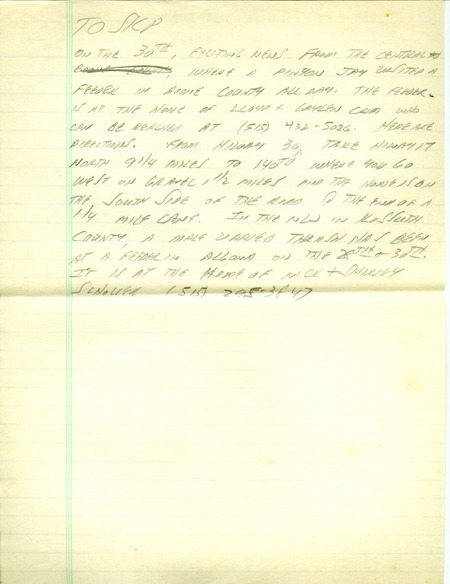 TO SKIP
ON THE 30TH, EXCITING NEWS FROM THE CENTRAL
WHERE A PINYON JAY VISITED A
FEEDER IN BOONE COUNTY ALL DAY. THE FEEDER
IS AT THE HOME OF LLOYD + CRIM WHO
CAN BE REACHED AT (515) 432-5026. HERE ARE
DIRECTIONS. FROM HIWAY 30, TAKE HIWAY 17
NORTH 9 1/4 MILES TO 140TH WHERE YOU GO
WEST ON GRAVEL 1 1/2 MILES AND THE HOME IS ON
THE SOUTH SIDE OF THE ROAD @ THE END OF A
1/4 MILE LANE. IN THE NW IN KOSSUTH
COUNTY, A MALE VARIED THRUSH HAS BEEN
AT A FEEDER IN ALGONA ON THE + 30TH.
IT IS AT THE HOME OF + SHIRLEY
(515) 295-3847